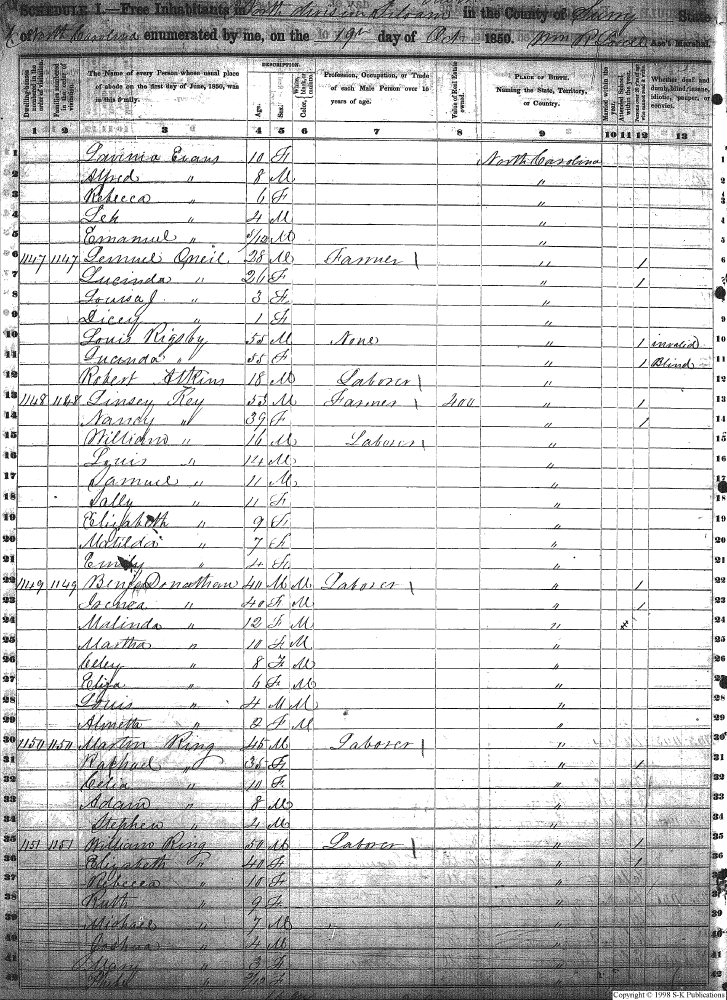 SCHEDULE I.—Free Inhabitants in in the County of Surry State
of North Carolina enumerated by me, on the 19th day of Oct 1850. Wm R Ass't Marshal.
DESCRIPTION.
Dwelling-houses numbered in the order of visitation. Families numbered in the order of visitation. The Name of every Person whose usual place of abode on the first day of June, 1850, was in this family. Age. Sex. Color, White, black, or mulatto. Profession, Occupation, or Trade of each Male Person over 15 years of age. Value of Real Estate owned. PLACE OF BIRTH. Naming the State, Territory, or Country. Married within the year. Attended School within the year. Whether deaf and dumb, blind, insane, idiotic, pauper, or convict.
1 2 3 4 5 6 7 8 9 10 11 12 13
1 Lavinia Evans 10 F North Carolina 1
2 Alfred " 8 M " 2
3 Rebecca " 6 F " 3
4 Leh " 4 M " 4
5 Emanuel " 5/12 M " 5
6 1147 1147 Lemuel Oneil 28 M Farmer 1 " 1 6
7 Lucinda " 26 F " 1 7
8 Louisa J. " 3 F " 8
9 Dicey " 1 F " 9
10 Louis Rigsby 55 M None " 1 invalid 10
11 Lucinda " 55 F " 1 Blind 11
12 Robert Atkins 18 M Laborer 1 " 12
13 1148 1148 Linsey Key 53 M Farmer 1 400 " 1 13
14 Nancy " 39 F " 1 14
15 William " 16 M Laborer 1 " 15
16 Louis " 14 M " 16
17 Samuel " 11 M " 17
18 Sally " 11 F " 18
19 Elizabeth " 9 F " 19
20 Matilda " 7 F " 20
21 Emily " 4 F " 21
22 1149 1149 Benj Donathan 40 M M Laborer 1 " 1 22
23 " 40 F M " 1 23
24 Malinda " 12 F M " 24
25 Martha " 10 F M " 25
26 Celey " 8 F M " 26
27 Eliza " 6 F M " 27
28 Louis " 4 M M " 28
29 " 2 F M " 29
30 1150 1150 Martin Ring 45 M Laborer 1 " 30
31 Rachael " 35 F " 1 31
32 Celia " 10 F " 32
33 Adam " 8 M " 33
34 Stephen " 4 M " 34
35 1151 1151 William Ring 50 M Laborer 1 " 1 35
36 Elizabeth " 40 F " 1 36
37 Rebecca " 10 F " 37
38 Ruth " 9 F " 38
39 Michael " 7 M " 39
40 Joshua " 4 M " 40
41 Mary " 3 F " 41
42 " F " 42
Copyright © 1998 S-K Publications